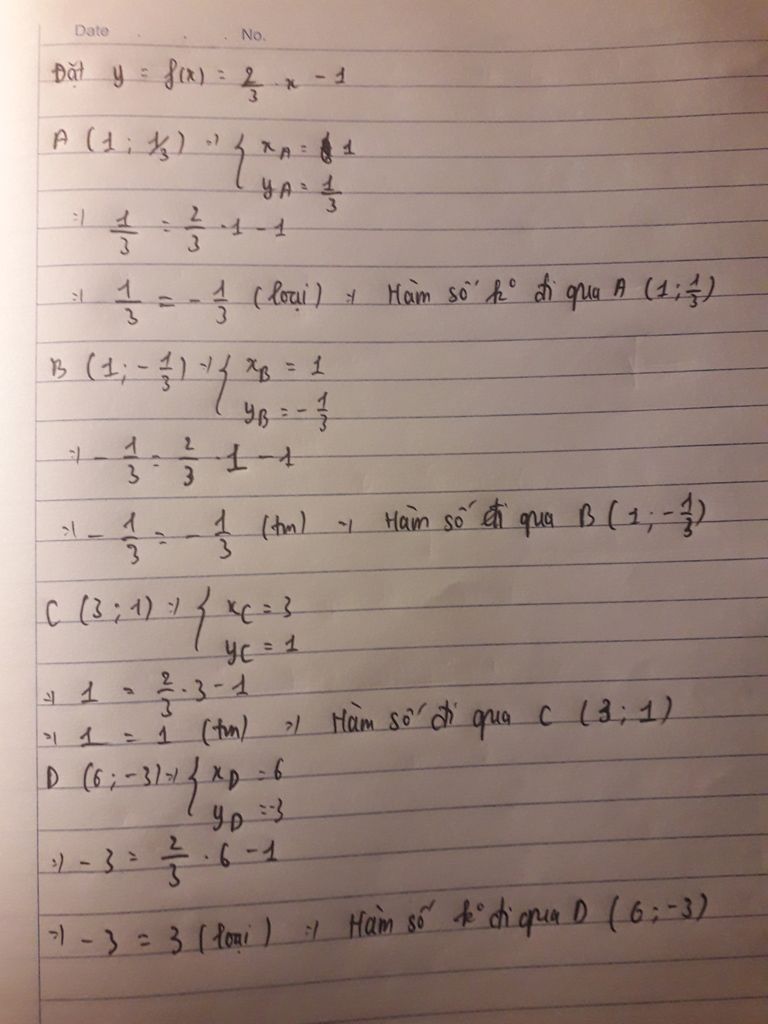 Date . . . No.
Đặt y = f(x) = 2/3 . x - 1
A (1 ; 1/3) => { xA = 1
yA = 1/3
=> 1/3 = 2/3 . 1 - 1
=> 1/3 = - 1/3 (loại) => Hàm số k° đi qua A (1 ; 1/3)
B (1 ; - 1/3) => { xB = 1
yB = - 1/3
=> - 1/3 = 2/3 . 1 - 1
=> - 1/3 = - 1/3 (tm) => Hàm số đi qua B (1 ; - 1/3)
C (3 ; 1) => { xC = 3
yC = 1
=> 1 = 2/3 . 3 - 1
=> 1 = 1 (tm) => Hàm số đi qua C (3 ; 1)
D (6 ; -3) => { xD = 6
yD = -3
=> - 3 = 2/3 . 6 - 1
=> - 3 = 3 (loại) => Hàm số k° đi qua D (6 ; -3)